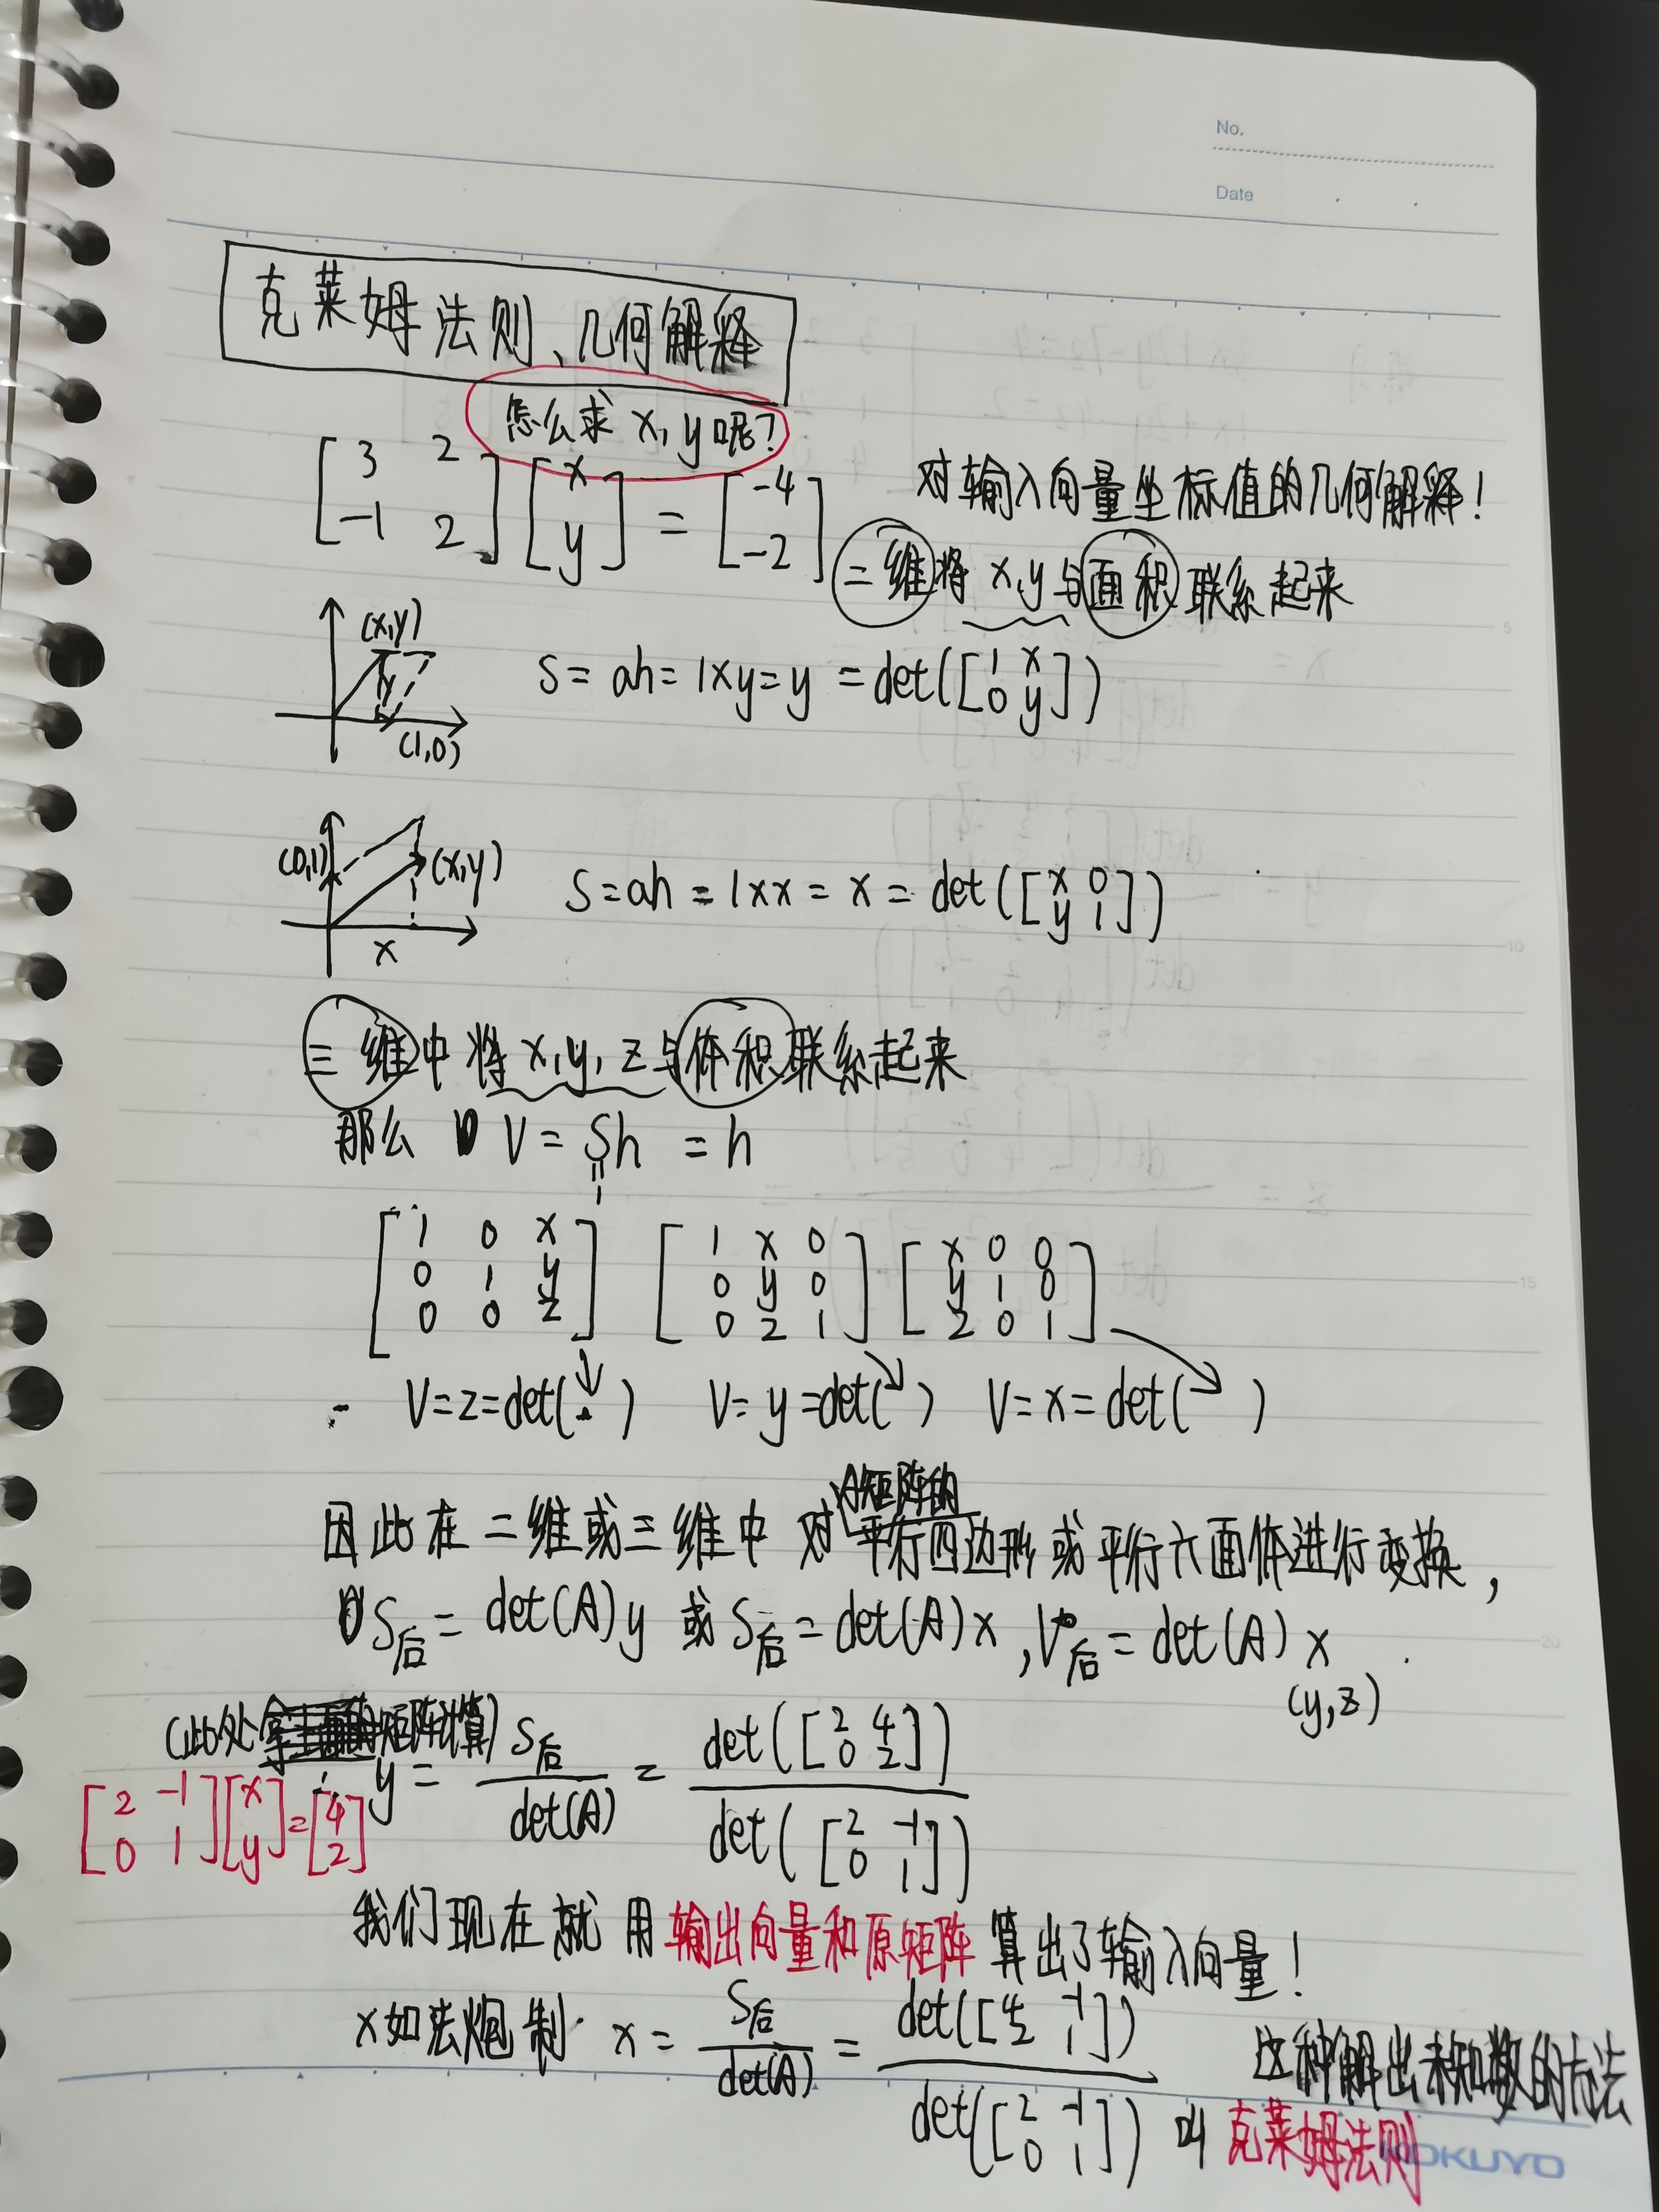 No.
Date
克莱姆法则、几何解释
怎么求 x, y 呢?
[3 2; -1 2] [x; y] = [-4; -2]
对输入向量坐标值的几何解释!
二维将 x,y 与面积联系起来
(x,y)
y
(1,0)
S = ah = 1×y = y = det([1 x; 0 y])
(0,1)
(x,y)
x
S = ah = 1×x = x = det([x 0; y 1])
三维中将 x, y, z 与体积联系起来
那么 V = Sh = h
1
[1 0 x; 0 1 y; 0 0 z] [1 x 0; 0 y 0; 0 z 1] [x 0 0; y 1 0; z 0 1]
V = z = det( ) V = y = det( ) V = x = det( )
A矩阵的
因此在二维或三维中 对平行四边形或平行六面体进行变换,
S后 = det(A) y 或 S后 = det(A) x , V后 = det(A) x
(y,z)
(此处 矩阵计算)
[2 -1; 0 1] [x; y] = [4; 2]
y = S后 / det(A) = det([2 4; 0 2]) / det([2 -1; 0 1])
我们现在就用输出向量和原矩阵算出了输入向量!
x如法炮制. x = S后 / det(A) = det([4 -1; 2 1]) / det([2 -1; 0 1])
这种解出未知数的方法
叫 克莱姆法则
KOKUYO
5
10
15
20